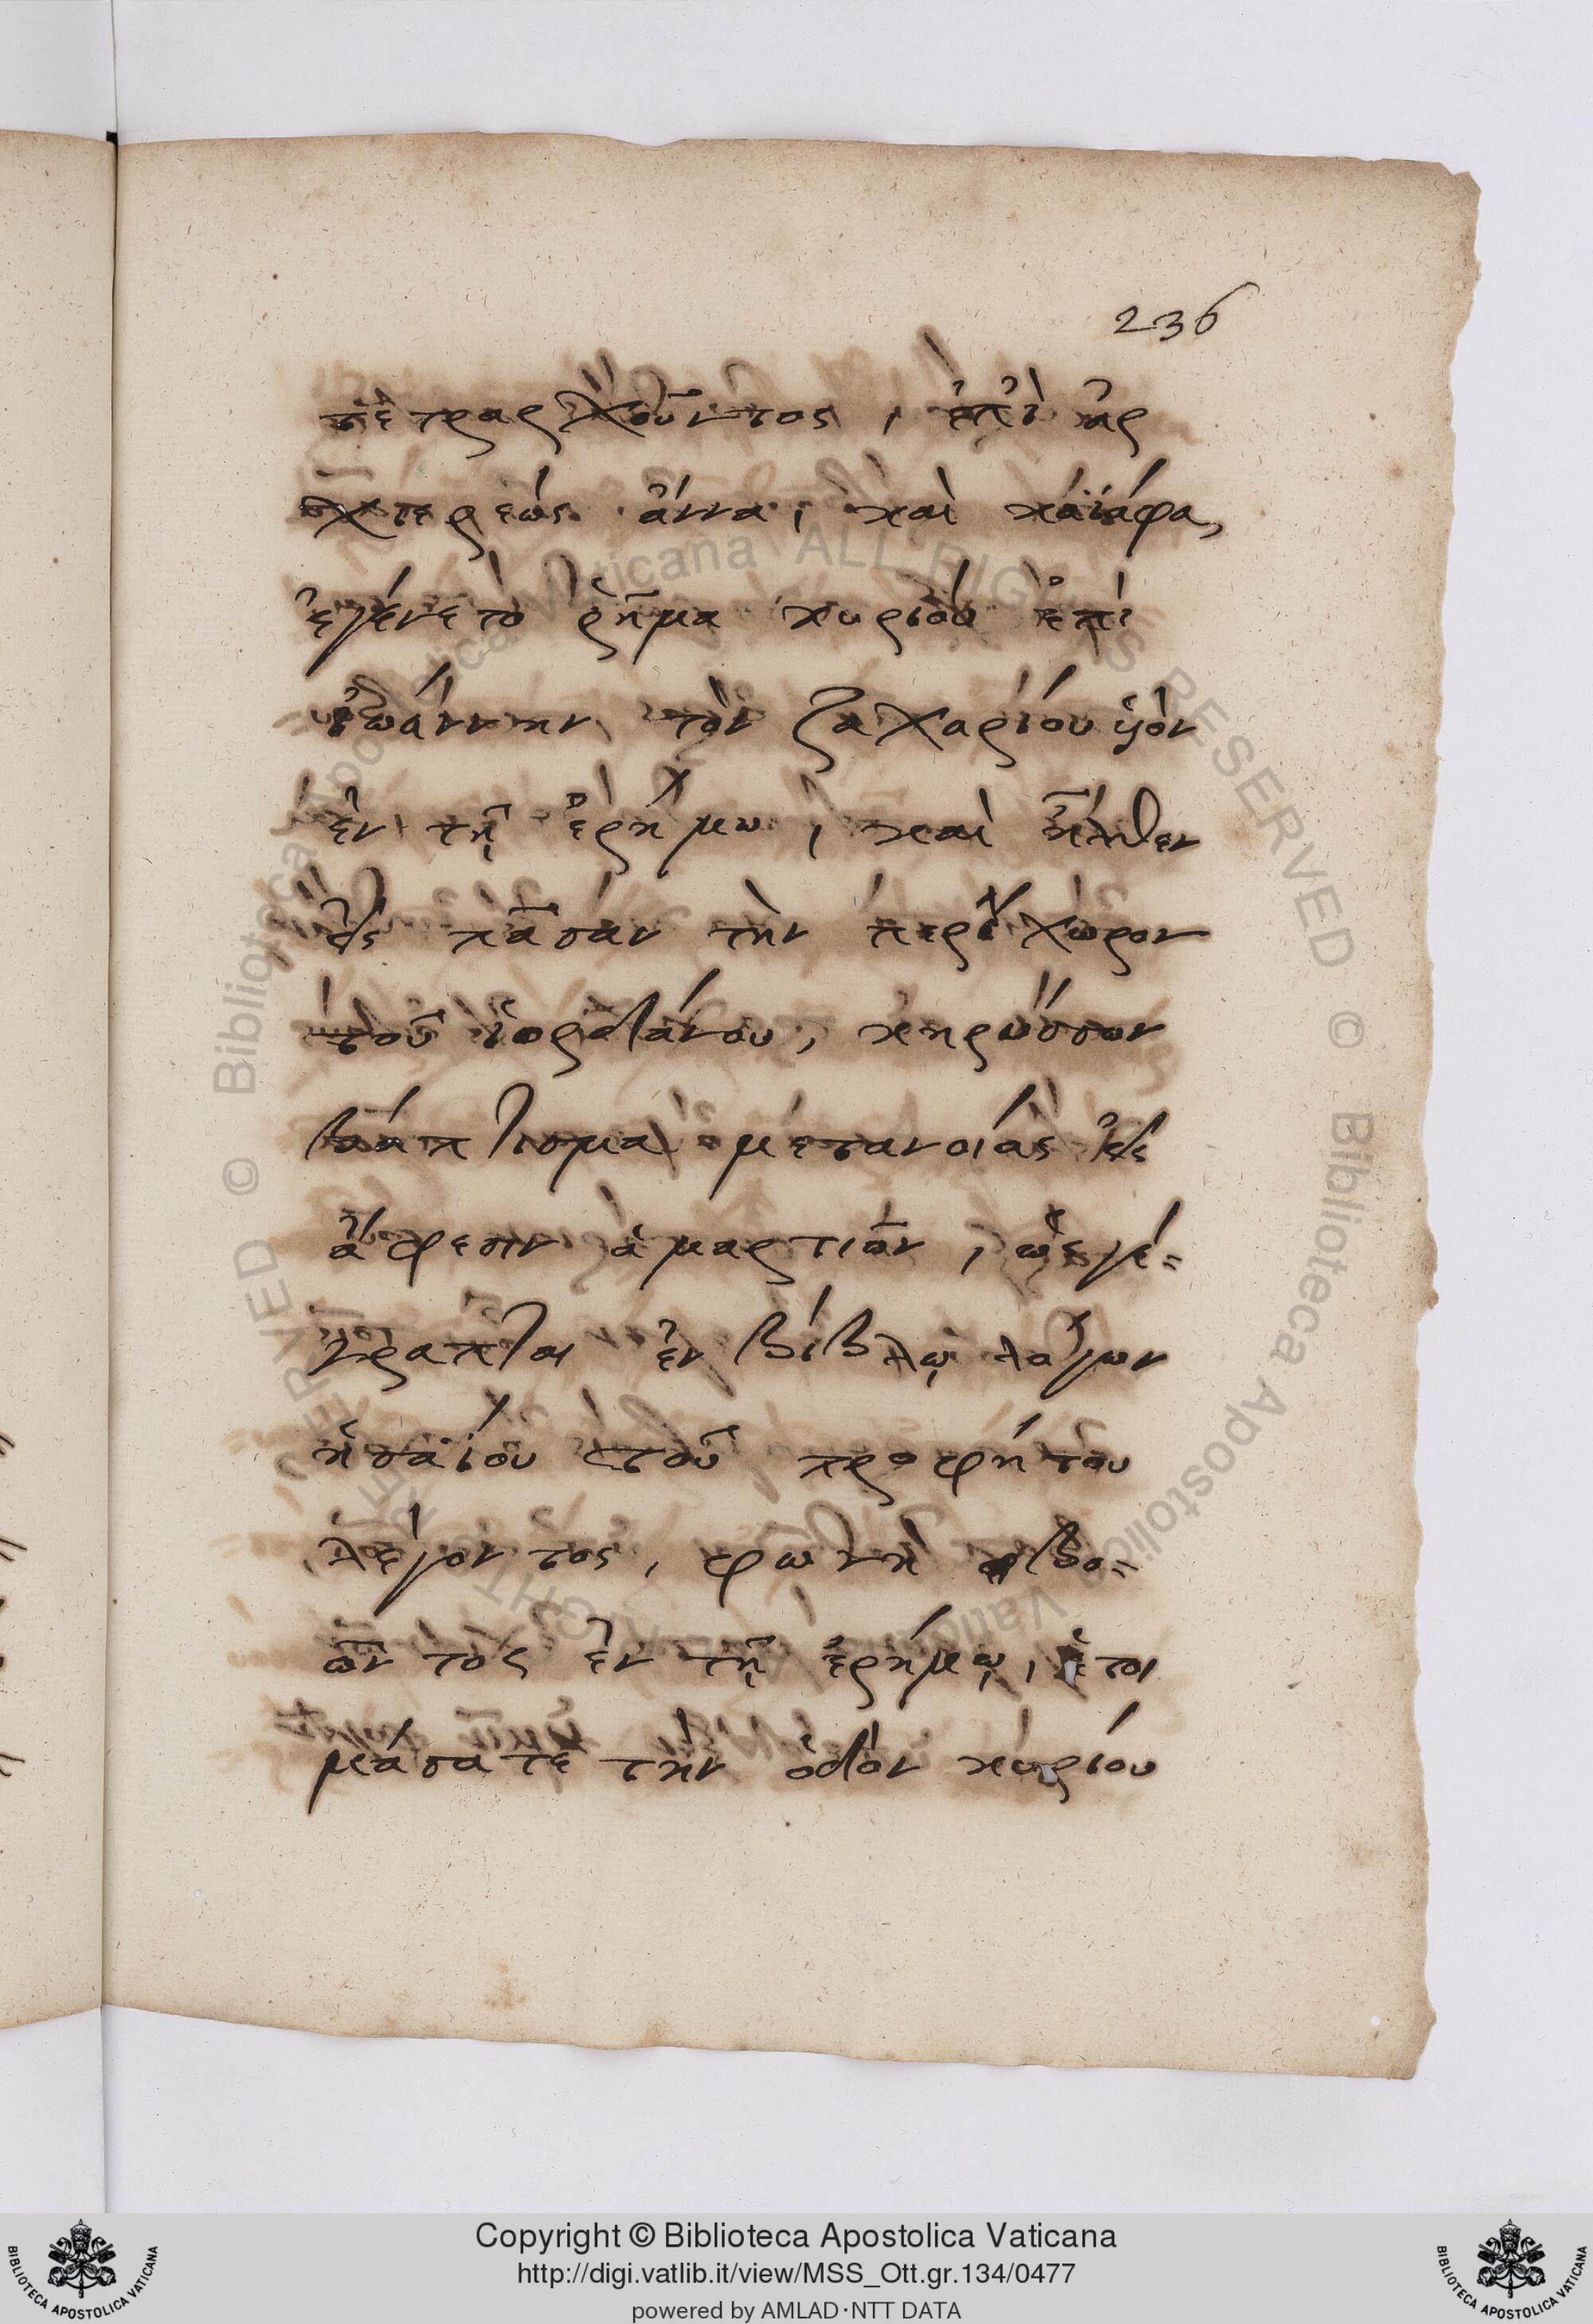 236
τετραρχοῦντος, ἐπὶ ἀρ
χιερέως ἄννα, καὶ καϊάφα,
ἐγένετο ῥῆμα κυρίου ἐπὶ
ἰωάννην τὸν ζαχαρίου ὑιὸν
ἐν τῇ ἐρήμω, καὶ ἦλθεν
εἰς πᾶσαν τὴν περίχωρον
τοῦ ἰορδάνου, κηρύσσων
βάπτισμα μετανοίας εἰς
ἄφεσιν ἁμαρτιῶν, ὡς γέ=
γραπται ἐν βίβλῳ λόγων
ἡσαΐου τοῦ προφήτου
λέγοντος, φωνὴ βο=
ῶντος ἐν τῇ ἐρήμῳ, ἑτοι
μάσατε τὴν ὁδὸν κυρίου
Copyright © Biblioteca Apostolica Vaticana
http://digi.vatlib.it/view/MSS_Ott.gr.134/0477
powered by AMLAD·NTT DATA
BIBLIOTECA APOSTOLICA VATICANA
BIBLIOTECA APOSTOLICA VATICANA